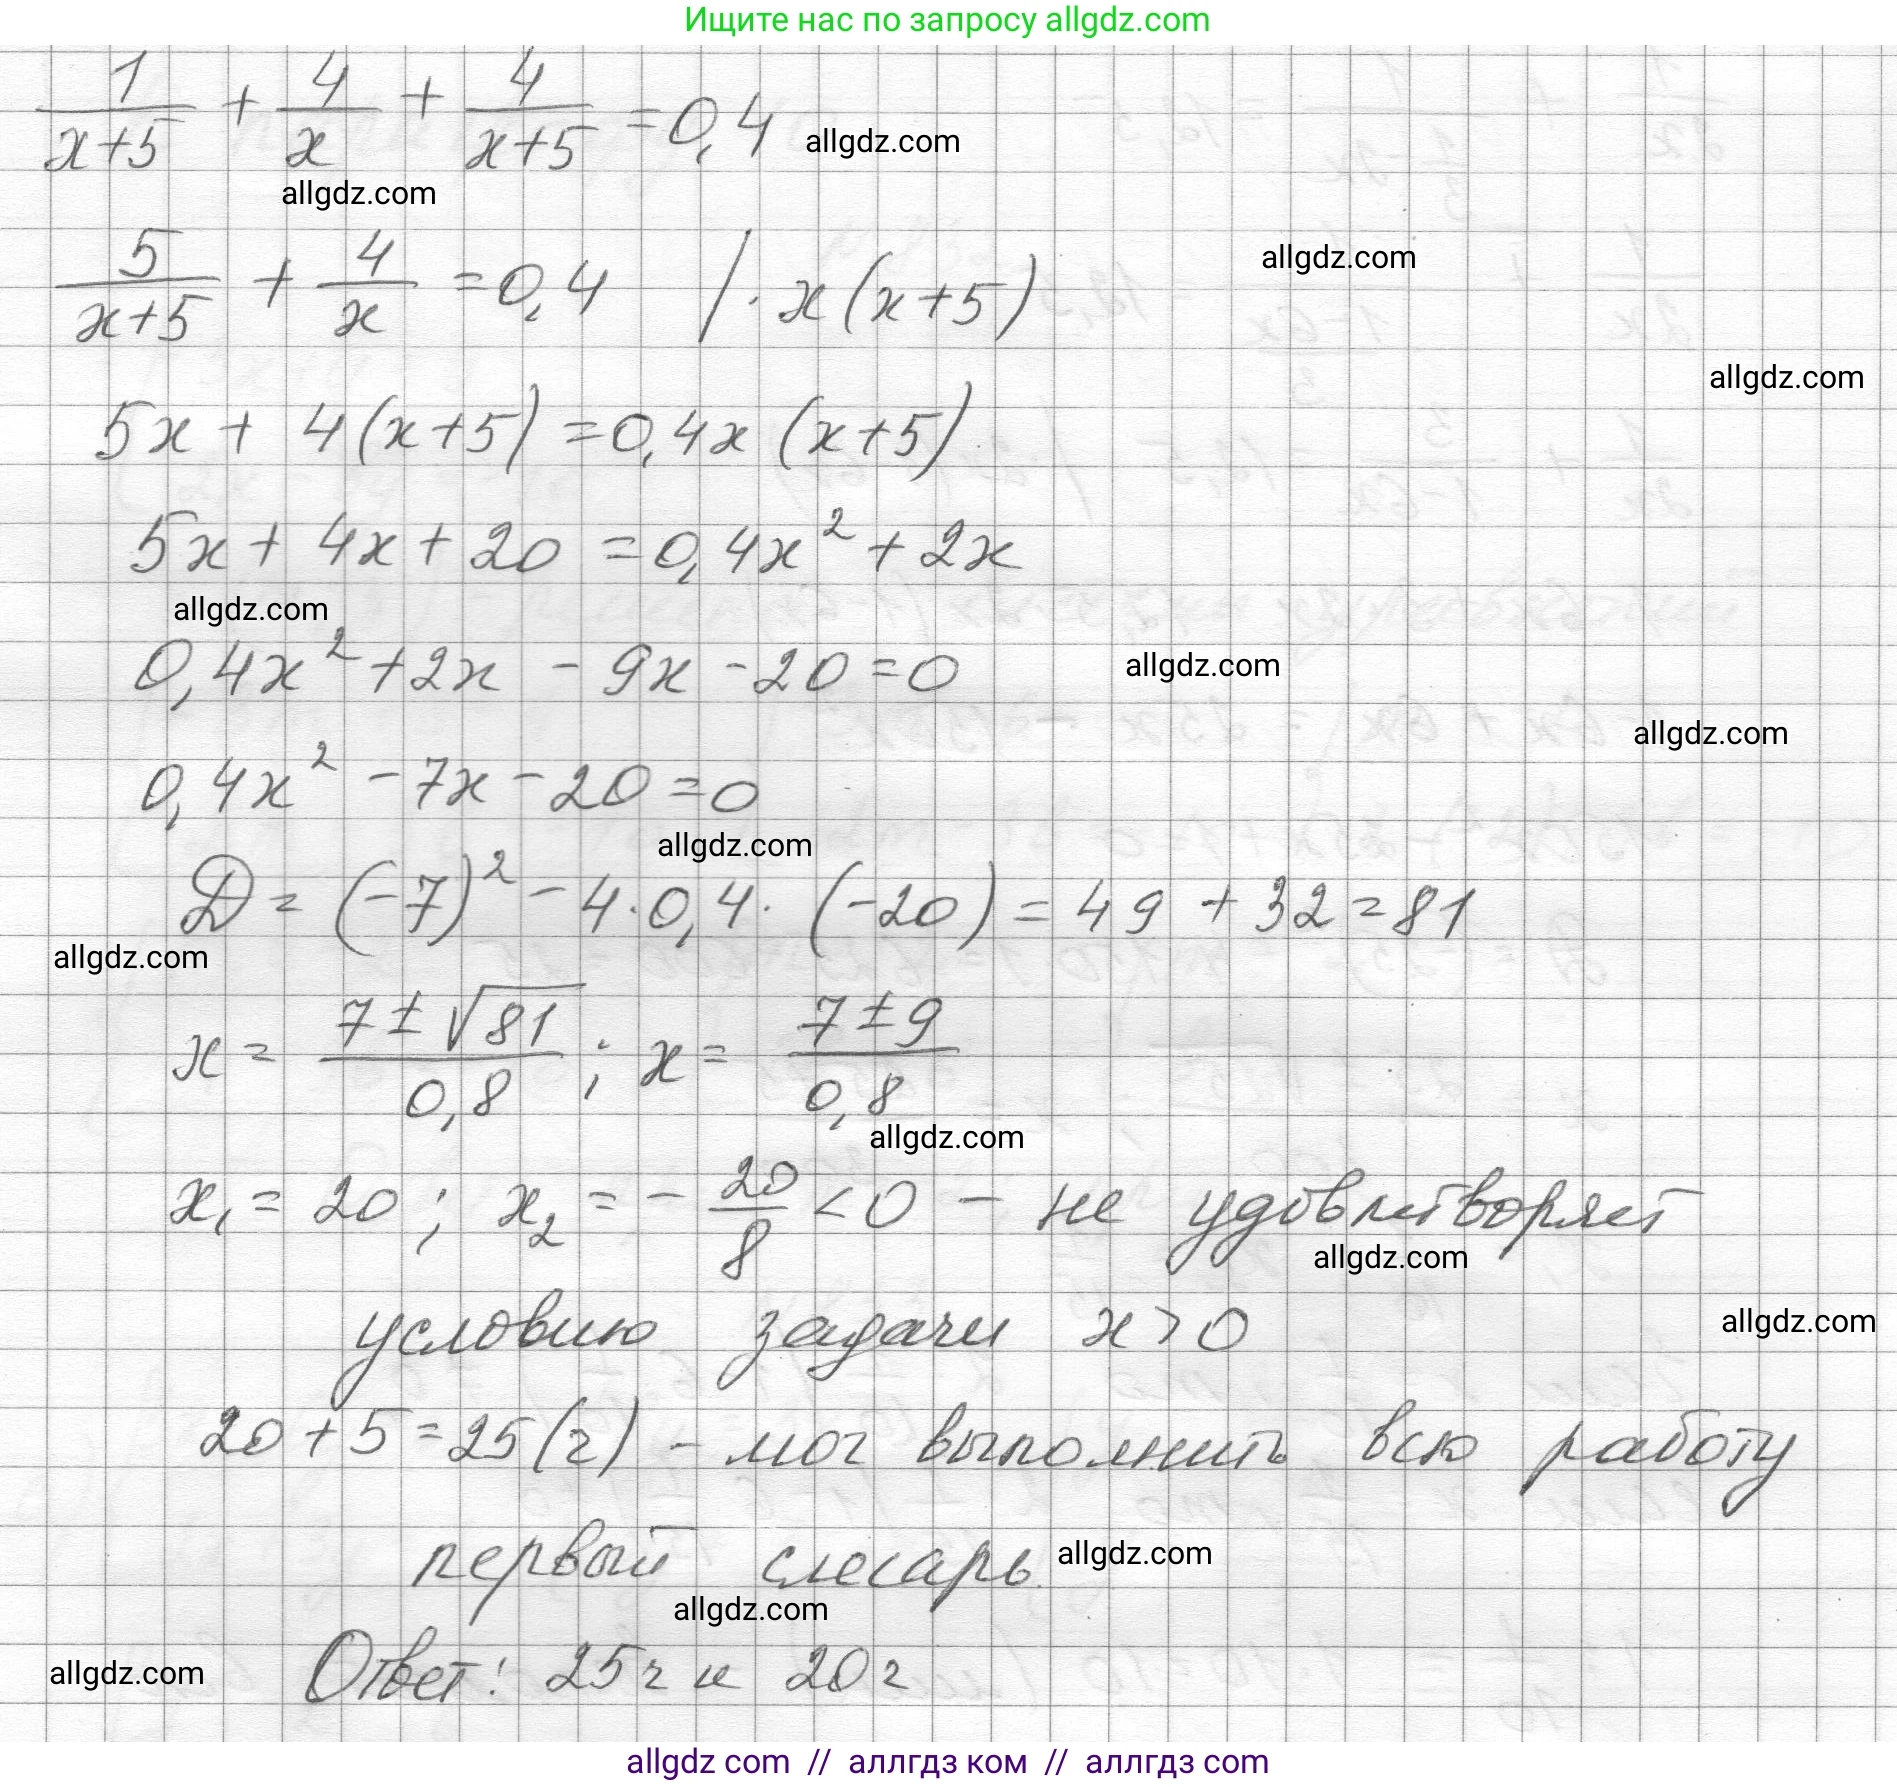 Ищите нас по запросу allgdz.com
1/(x+5) + 4/x + 4/(x+5) = 0,4 allgdz.com
allgdz.com
5/(x+5) + 4/x = 0,4 | · x(x+5) allgdz.com
allgdz.com
5x + 4(x+5) = 0,4x(x+5)
5x + 4x + 20 = 0,4x² + 2x
allgdz.com
0,4x² + 2x - 9x - 20 = 0 allgdz.com
allgdz.com
0,4x² - 7x - 20 = 0
allgdz.com
D = (-7)² - 4 · 0,4 · (-20) = 49 + 32 = 81
allgdz.com
x = (7 ± √81)/0,8 ; x = (7 ± 9)/0,8
allgdz.com
x₁ = 20 ; x₂ = - 20/8 < 0 - не удовлетворяет
allgdz.com
условию задачи x > 0 allgdz.com
20 + 5 = 25 (ч) - мог выполнить всю работу
первый слесарь. allgdz.com
allgdz.com
Ответ: 25 ч и 20 ч
allgdz.com
allgdz com // аллгдз ком // аллгдз com